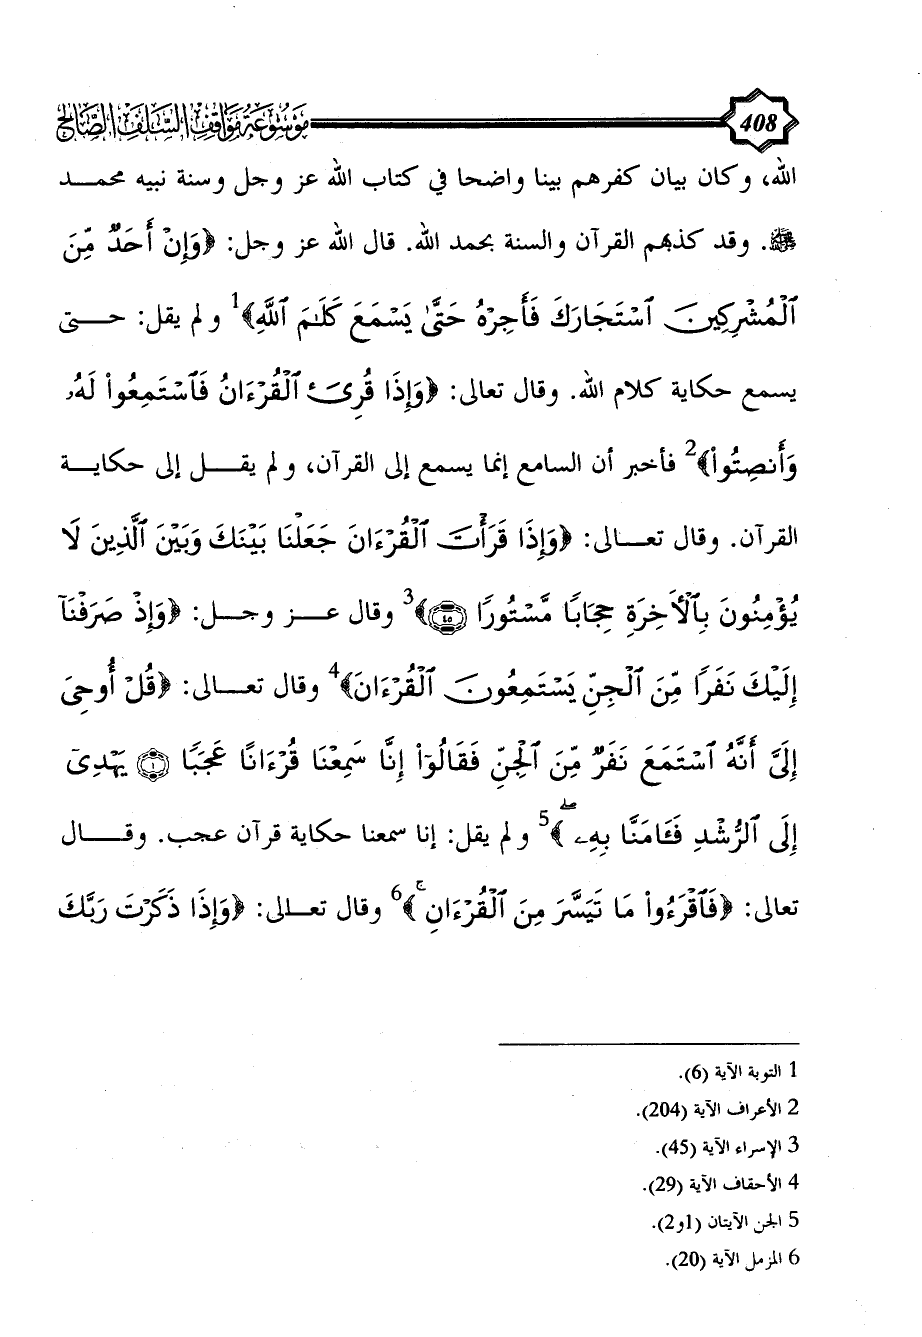 408 موسوعة مواقف السلف الصالح
الله، وكان بيان كفرهم بينا واضحا في كتاب الله عز وجل وسنة نبيه محمد
ﷺ. وقد كذبهم القرآن والسنة بحمد الله. قال الله عز وجل: ﴿وَإِنْ أَحَدٌ مِّنَ
ٱلْمُشْرِكِينَ ٱسْتَجَارَكَ فَأَجِرْهُ حَتَّىٰ يَسْمَعَ كَلَٰمَ ٱللَّهِ﴾1 ولم يقل: حتى
يسمع حكاية كلام الله. وقال تعالى: ﴿وَإِذَا قُرِئَ ٱلْقُرْءَانُ فَٱسْتَمِعُوا۟ لَهُۥ
وَأَنصِتُوا۟﴾2 فأخبر أن السامع إنما يسمع إلى القرآن، ولم يقل إلى حكاية
القرآن. وقال تعالى: ﴿وَإِذَا قَرَأْتَ ٱلْقُرْءَانَ جَعَلْنَا بَيْنَكَ وَبَيْنَ ٱلَّذِينَ لَا
يُؤْمِنُونَ بِٱلْأَخِرَةِ حِجَابًا مَّسْتُورًا ٤٥﴾3 وقال عز وجل: ﴿وَإِذْ صَرَفْنَآ
إِلَيْكَ نَفَرًا مِّنَ ٱلْجِنِّ يَسْتَمِعُونَ ٱلْقُرْءَانَ﴾4 وقال تعالى: ﴿قُلْ أُوحِىَ
إِلَىَّ أَنَّهُ ٱسْتَمَعَ نَفَرٌ مِّنَ ٱلْجِنِّ فَقَالُوٓا۟ إِنَّا سَمِعْنَا قُرْءَانًا عَجَبًا ١ يَهْدِىٓ
إِلَى ٱلرُّشْدِ فَـَٔامَنَّا بِهِۦ ۖ﴾5 ولم يقل: إنا سمعنا حكاية قرآن عجب. وقال
تعالى: ﴿فَٱقْرَءُوا۟ مَا تَيَسَّرَ مِنَ ٱلْقُرْءَانِ ۚ﴾6 وقال تعالى: ﴿وَإِذَا ذَكَرْتَ رَبَّكَ
1 التوبة الآية (6).
2 الأعراف الآية (204).
3 الإسراء الآية (45).
4 الأحقاف الآية (29).
5 الجن الآيتان (1و2).
6 المزمل الآية (20).